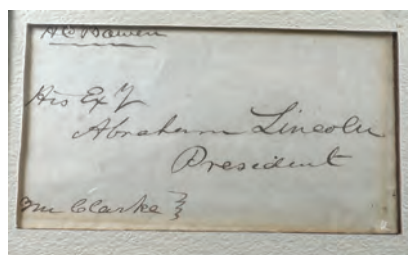 H C Bowen
His Exy
Abraham Lincoln
President
Mr Clarke }